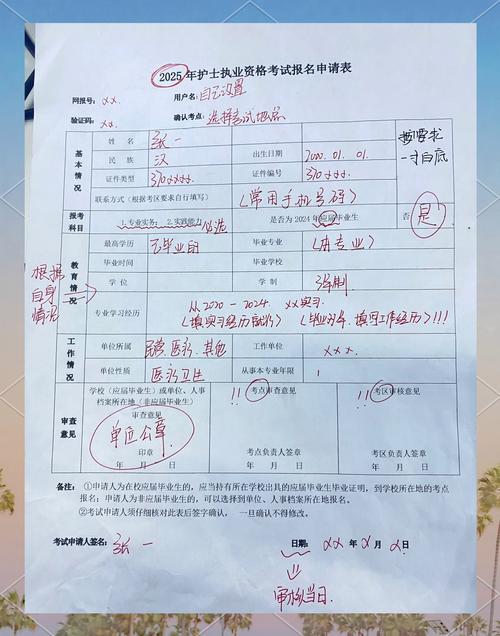 2025 年护士执业资格考试报名申请表
网报号：xx. 用户名：自己设置
验证码：xx. 确认考点：选择考试地点
基本情况
姓名 张一
民族 汉 出生日期 2000. 01. 01.
证件类型 310xxxx. 证件编号 310xxx.
联系方式（根据考区要求自行填写） （常用手机号码）
按要求
一寸白底
报考科目 1.专业实务；2.实践能力 必选 是否为 2024 年应届毕业生 否 是
教育情况
最高学历 毕业专业 （本专业）
毕业时间 毕业学校
学位 学制
专业学习经历 从2020－2024. xx实习.
（填实习经历就行） （毕业多年、填写工作经历）!!!
根据
自身
情况
工作情况
单位所属 民营. 医疗. 其他 工作单位 xxx.
单位性质 医疗卫生 从事本专业年限 1
审查意见
学校（应届毕业生）或单位、人事档案所在地（非应届毕业生）
审查意见
单位公章
印章
年 月 日
!! 考点审查意见
考点负责人签章
年 月 日
!! 考区审核意见
考区负责人签章
年 月 日
备注： ①申请人为在校应届毕业生的，应当持有所在学校出具的应届毕业生毕业证明，到学校所在地的考点
报名；申请人为非应届毕业生的，可以选择到单位、人事档案所在地报名。
②考试申请人须仔细核对此表后签字确认， 一旦确认不得修改。
考试申请人签名：张一 日期：xx 年 x 月 x 日
审核当日.